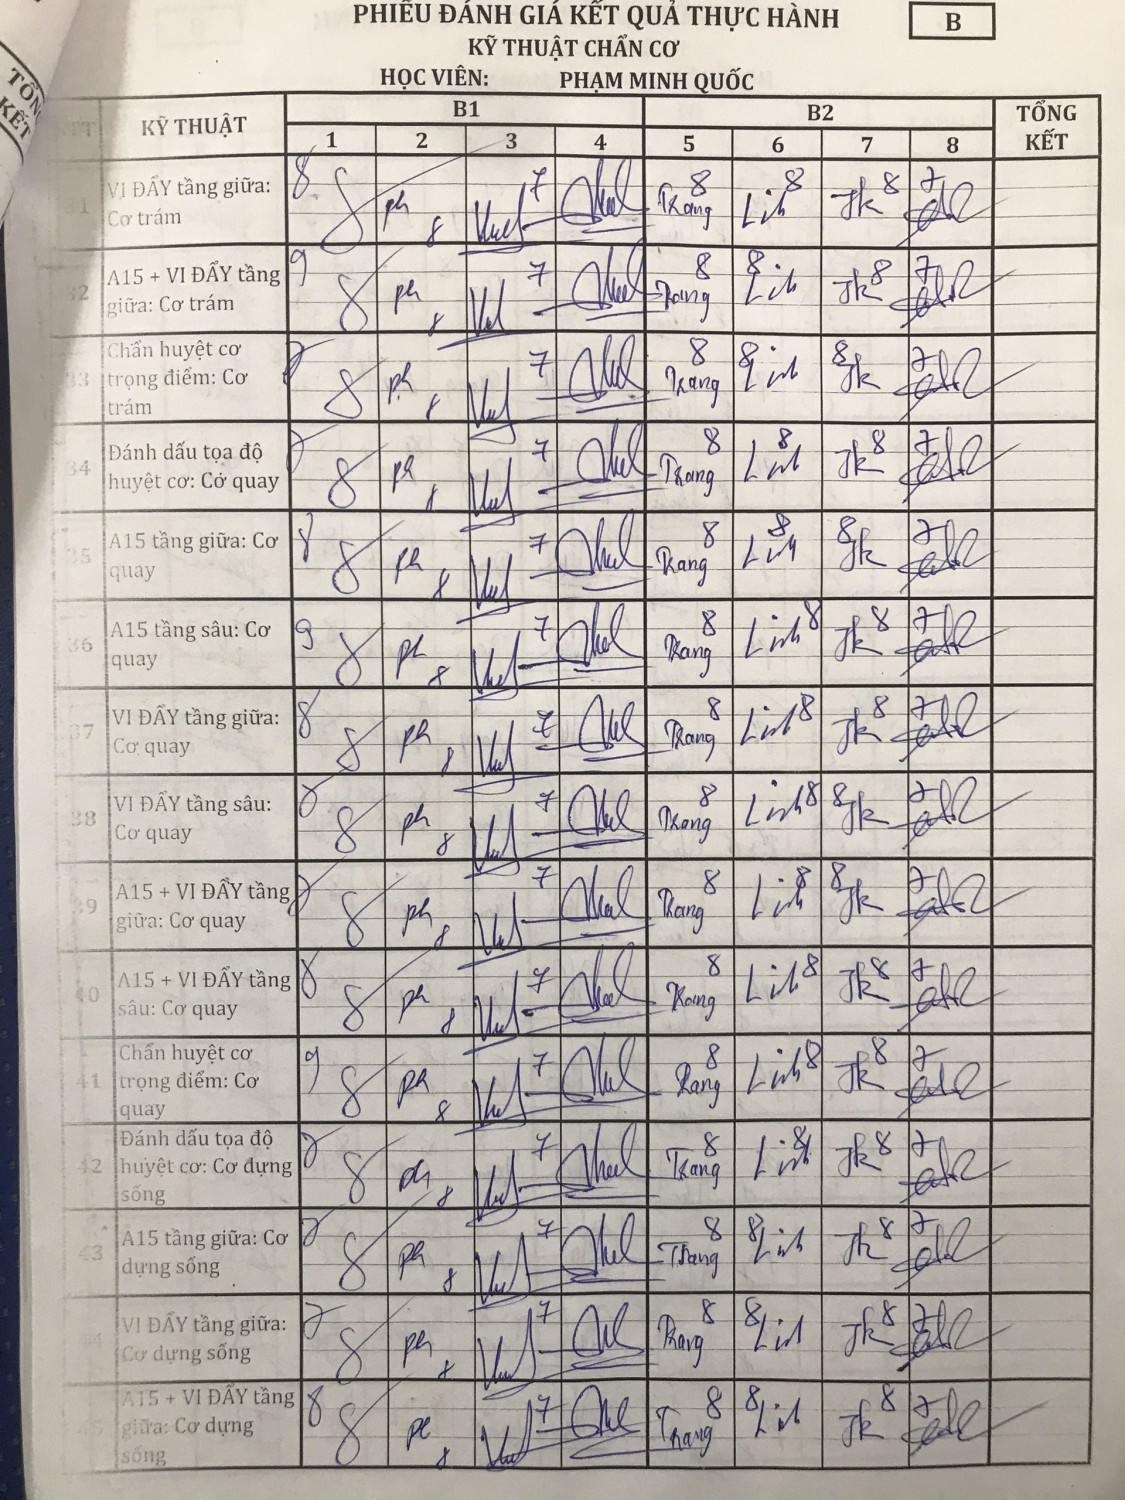 TỔNG
KẾT
PHIẾU ĐÁNH GIÁ KẾT QUẢ THỰC HÀNH
B
KỸ THUẬT CHẨN CƠ
HỌC VIÊN: PHẠM MINH QUỐC
TT KỸ THUẬT B1 B2 TỔNG KẾT
1 2 3 4 5 6 7 8
31 VI ĐẨY tầng giữa: Cơ trám 8 ph 8 7 Trang 8 Linh 8 Jk 8 7
32 A15 + VI ĐẨY tầng giữa: Cơ trám 9 ph 8 7 Trang 8 Linh 8 Jk 8 7
33 Chẩn huyệt cơ trọng điểm: Cơ trám ph 8 7 Trang 8 Linh 8 Jk 8 7
34 Đánh dấu tọa độ huyệt cơ: Cơ quay ph 8 7 Trang 8 Linh 8 Jk 8 7
35 A15 tầng giữa: Cơ quay 8 ph 8 7 Trang 8 Linh 8 Jk 8 7
36 A15 tầng sâu: Cơ quay 9 ph 8 7 Trang 8 Linh 8 Jk 8 7
37 VI ĐẨY tầng giữa: Cơ quay 8 ph 8 7 Trang 8 Linh 8 Jk 8 7
38 VI ĐẨY tầng sâu: Cơ quay 8 ph 8 7 Trang 8 Linh 8 Jk 8 7
39 A15 + VI ĐẨY tầng giữa: Cơ quay ph 8 7 Trang 8 Linh 8 Jk 8 7
40 A15 + VI ĐẨY tầng sâu: Cơ quay 8 ph 8 7 Trang 8 Linh 8 Jk 8 7
41 Chẩn huyệt cơ trọng điểm: Cơ quay 9 ph 8 7 Trang 8 Linh 8 Jk 8 7
42 Đánh dấu tọa độ huyệt cơ: Cơ dựng sống ph 8 7 Trang 8 Linh 8 Jk 8 7
43 A15 tầng giữa: Cơ dựng sống ph 8 7 Trang 8 Linh 8 Jk 8 7
44 VI ĐẨY tầng giữa: Cơ dựng sống ph 8 7 Trang 8 Linh 8 Jk 8 7
45 A15 + VI ĐẨY tầng giữa: Cơ dựng sống 8 8 7 Trang 8 Linh 8 Jk 8 7